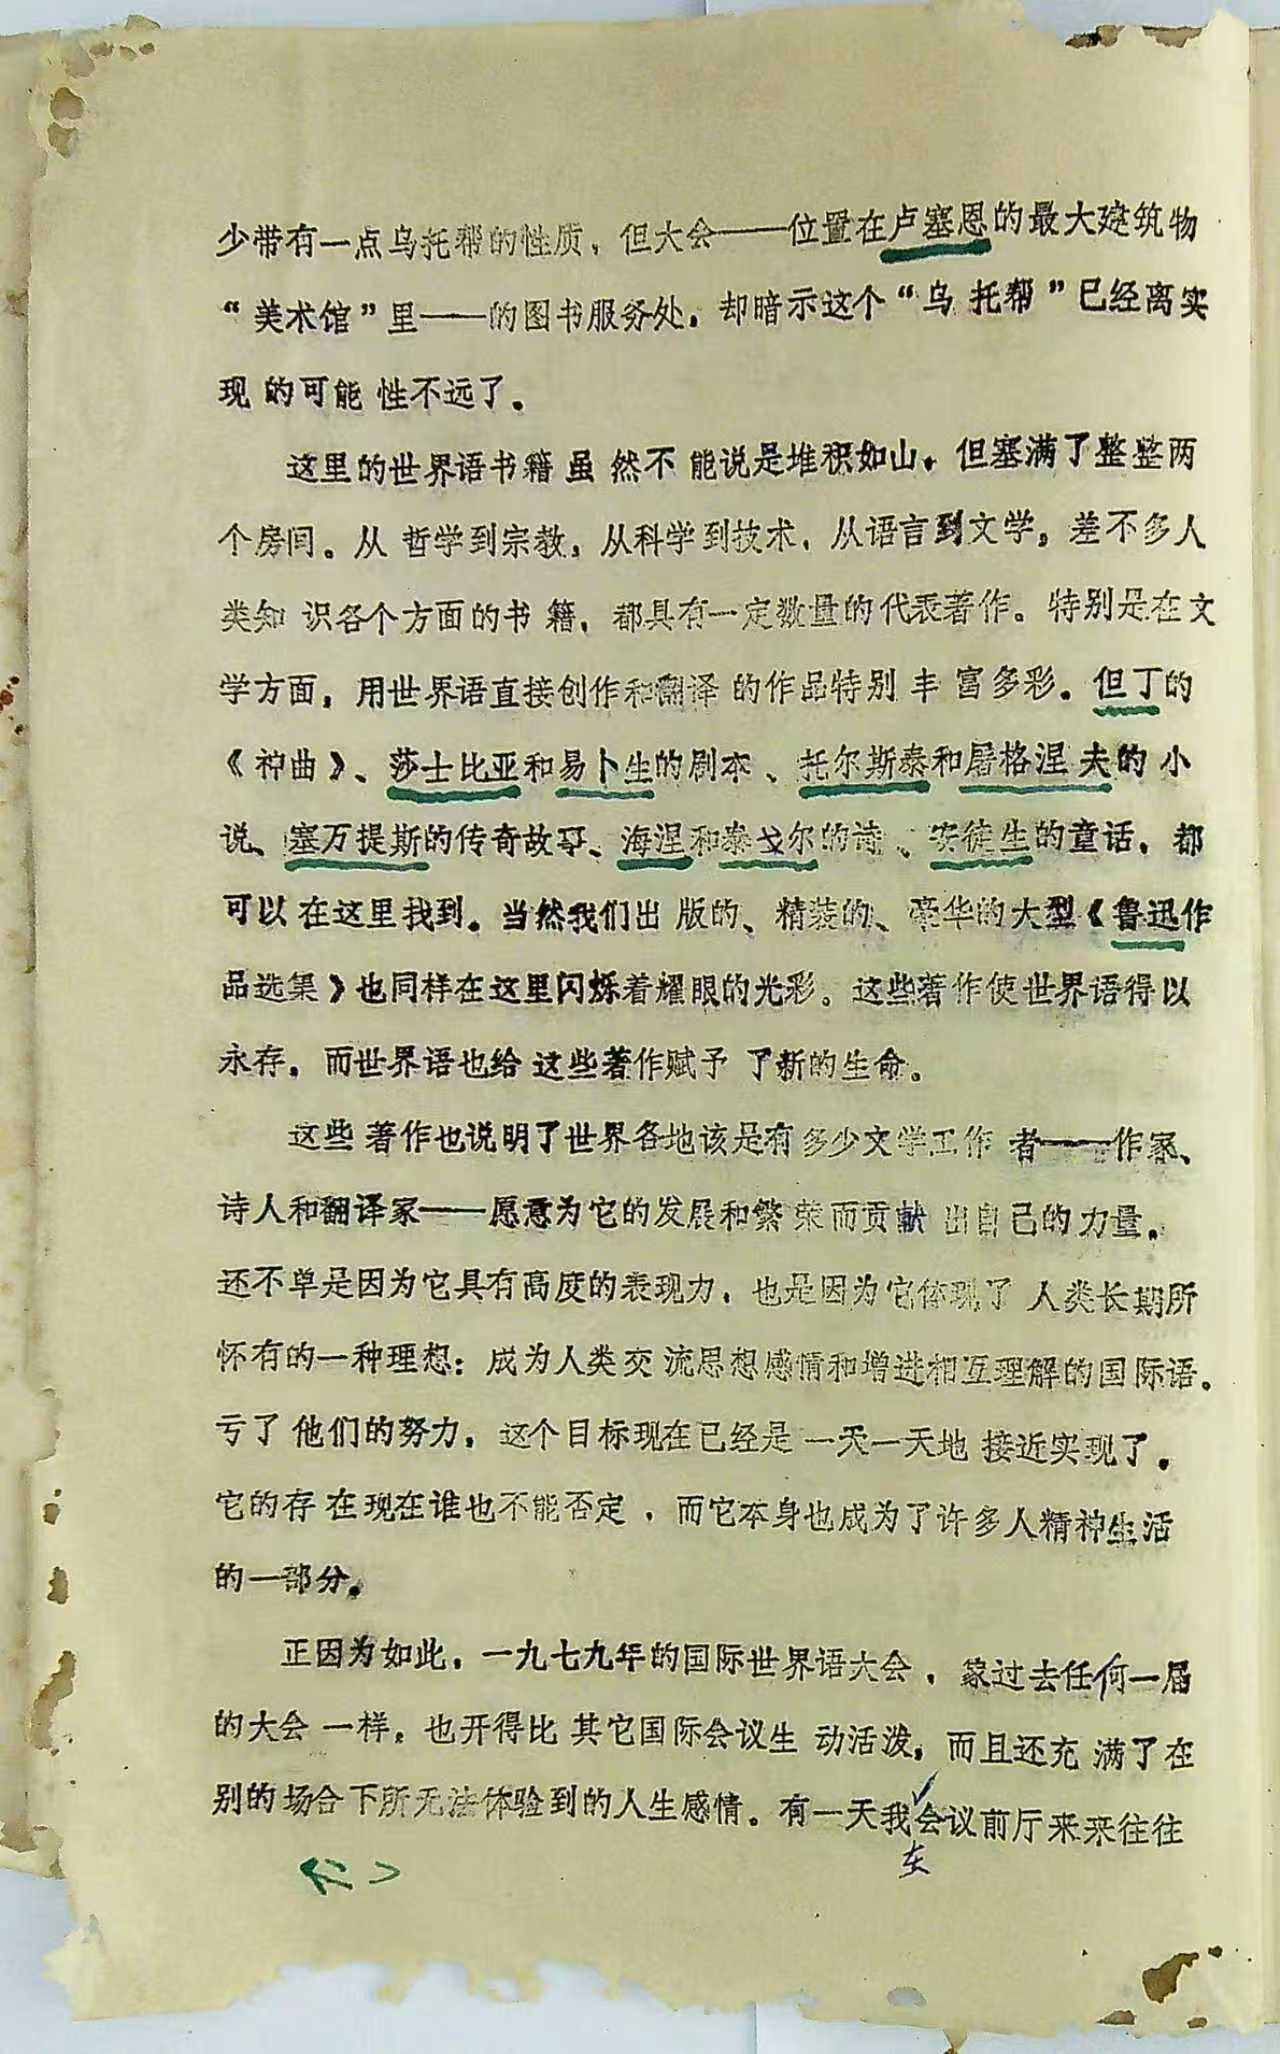 少带有一点乌托帮的性质，但大会——位置在卢塞恩的最大建筑物
“美术馆”里——的图书服务处，却暗示这个“乌托帮”已经离实
现的可能性不远了。
这里的世界语书籍虽然不能说是堆积如山，但塞满了整整两
个房间。从哲学到宗教，从科学到技术，从语言到文学，差不多人
类知识各个方面的书籍，都具有一定数量的代表著作。特别是在文
学方面，用世界语直接创作和翻译的作品特别丰富多彩。但丁的
《神曲》、莎士比亚和易卜生的剧本、托尔斯泰和屠格涅夫的小
说、塞万提斯的传奇故事、海涅和泰戈尔的诗、安徒生的童话，都
可以在这里找到。当然我们出版的、精装的、豪华的大型《鲁迅作
品选集》也同样在这里闪烁着耀眼的光彩。这些著作使世界语得以
永存，而世界语也给这些著作赋予了新的生命。
这些著作也说明了世界各地该是有多少文学工作者——作家、
诗人和翻译家——愿意为它的发展和繁荣而贡献出自己的力量。
还不单是因为它具有高度的表现力，也是因为它体现了人类长期所
怀有的一种理想：成为人类交流思想感情和增进相互理解的国际语。
亏了他们的努力，这个目标现在已经是一天一天地接近实现了。
它的存在现在谁也不能否定，而它本身也成为了许多人精神生活
的一部分。
正因为如此，一九七九年的国际世界语大会，象过去任何一届
的大会一样，也开得比其它国际会议生动活泼，而且还充满了在
别的场合下所无法体验到的人生感情。有一天我会议前厅来来往往
在